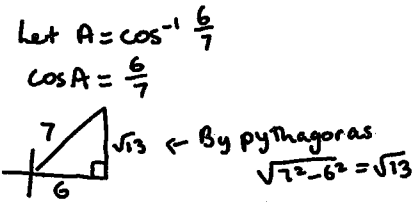 Let A = cos⁻¹ 6/7
cos A = 6/7
7
√13 ← By pythagoras
6
√7²-6² = √13